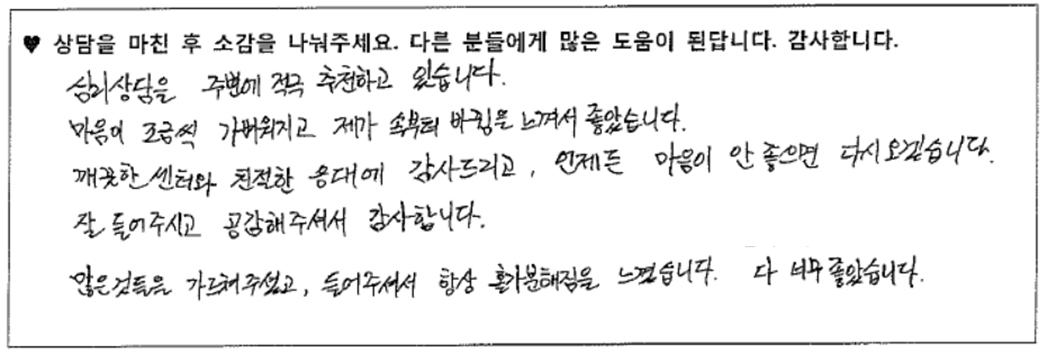 ♥ 상담을 마친 후 소감을 나눠주세요. 다른 분들에게 많은 도움이 된답니다. 감사합니다.
심리상담을 주변에 적극 추천하고 있습니다.
마음이 조금씩 가벼워지고 제가 속부터 바뀜을 느껴서 좋았습니다.
깨끗한 센터와 친절한 응대에 감사드리고, 언제든 마음이 안 좋으면 다시 오겠습니다.
잘 들어주시고 공감해주셔서 감사합니다.
많은것들을 가르쳐주셨고, 들어주셔서 항상 홀가분해짐을 느꼈습니다. 다 너무 좋았습니다.